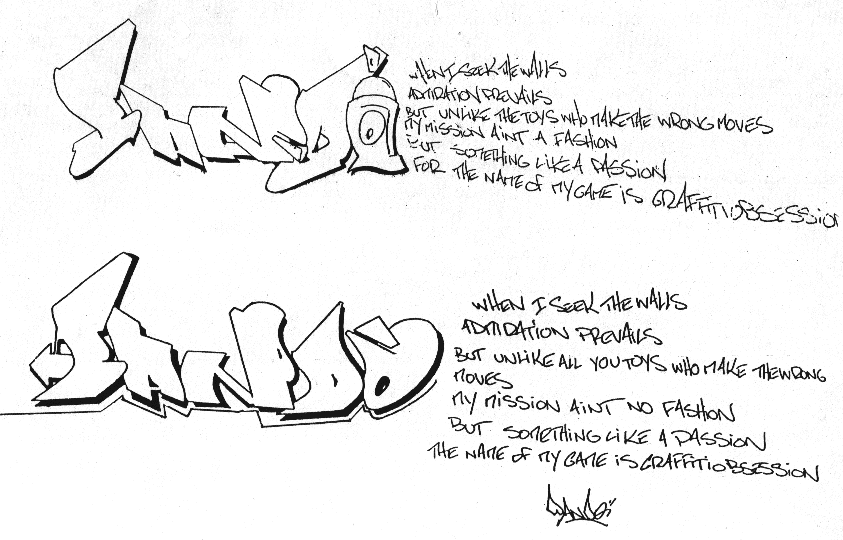 WHEN I SEEK THE WALLS
ADMIRATION PREVAILS
BUT UNLIKE THE TOYS WHO MAKE THE WRONG MOVES
MY MISSION AINT A FASHION
BUT SOMETHING LIKE A PASSION
FOR THE NAME OF MY GAME IS GRAFFITI OBSESSION
WHEN I SEEK THE WALLS
ADMIRATION PREVAILS
BUT UNLIKE ALL YOU TOYS WHO MAKE THE WRONG
MOVES
MY MISSION AINT NO FASHION
BUT SOMETHING LIKE A PASSION
THE NAME OF MY GAME IS GRAFFITI OBSESSION